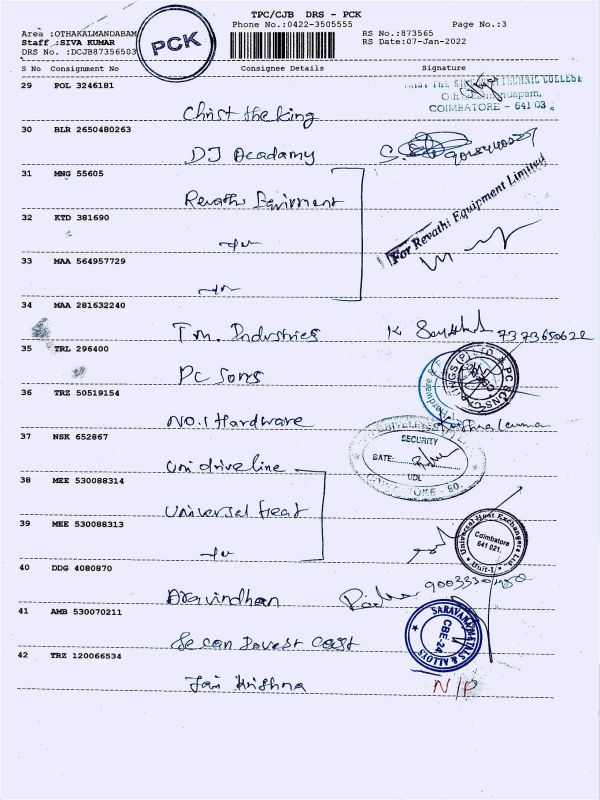 TPC/CJB DRS - PCK
Phone No.:0422-3505555
Page No.:3
Area :OTHAKALMANDABAM
Staff :SIVA KUMAR
DRS No. :DCJB87356503
PCK
RS No.:873565
RS Date:07-Jan-2022
S No Consignment No Consignee Details Signature
29 POL 3246181
Christ the King
COIMBATORE - 641 03
30 BLR 2650480263
DJ Acadamy
31 MNG 55605
Revathi
For Revathi Equipment Limited
32 KTD 381690
33 MAA 564957729
34 MAA 281632240
T.M. Industries K 7373650622
35 TRL 296400
PC Sons
36 TRZ 50519154
No.1 Hardware
37 NSK 652867
Uni driveline
SECURITY
DATE:
UDL
38 MEE 530088314
Universal Heat
39 MEE 530088313
Universal Heat Exchangers Ltd.
Coimbatore
641 021.
Unit-I
40 DDG 4080870
Aravindhan
41 AMB 530070211
SARAVANA METALS & ALLOYS
CBE-24
42 TRZ 120066534
Jai Krishna N/P